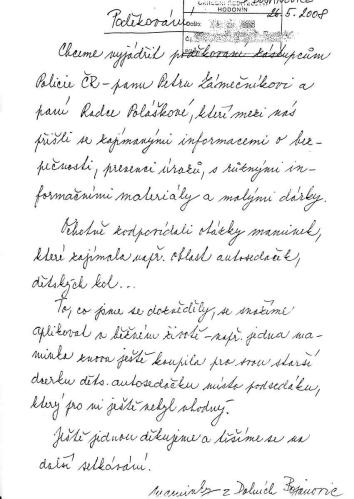 Poděkování
HODONÍN
26.5.2008
Chceme vyjádřit poděkování zástupcům
Policie ČR - panu Petru Zámečníkovi a
paní Radce Poláškové, kteří mezi nás
přišli se zajímavými informacemi o bez-
pečnosti, prevenci úrazů, s různými in-
formačními materiály a malými dárky.
Ochotně zodpovídali otázky maminek,
které zajímala např. oblast autosedaček,
dětských kol...
To, co jsme se dozvěděly, se snažíme
aplikovat v běžném životě - např. jedna ma-
minka znovu ještě koupila pro svou starší
dcerku děts. autosedačku místo podsedáku,
který pro ni ještě nebyl vhodný.
Ještě jednou děkujeme a těšíme se na
další setkávání.
maminky z Dolních Bojanovic